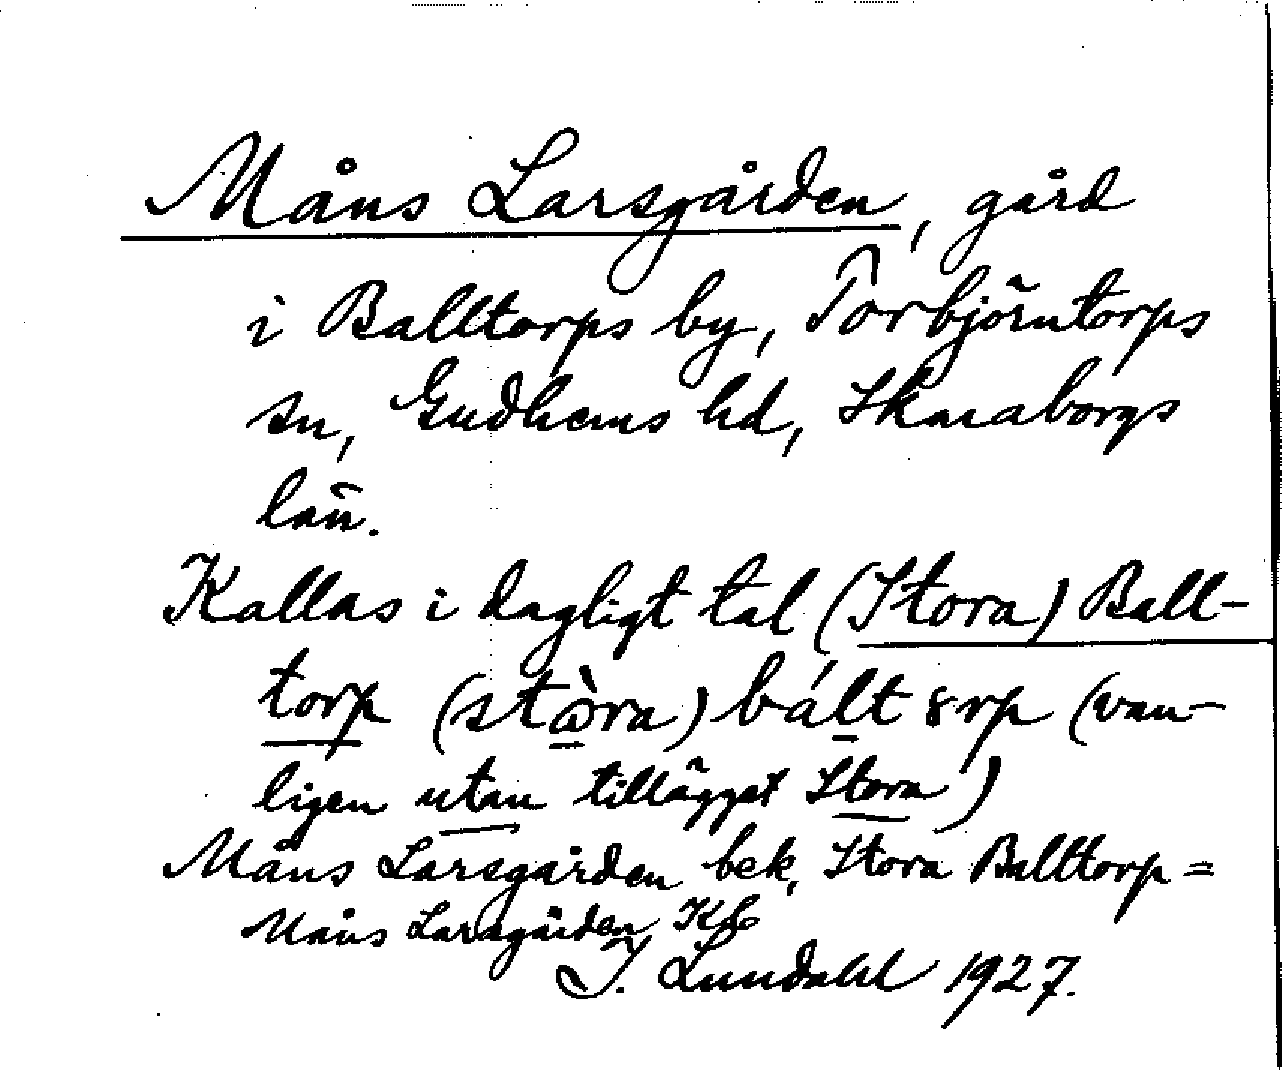 Måns Larsgården, gård
i Balltorps by, Torbjörntorps
sn, Gudhems hd, Skaraborgs
län.
Kallas i dagligt tal (Stora) Ball-
torp (stòra) bált 8rp (van-
ligen utan tillägget Stora)
Måns Larsgården bek, Stora Balltorp =
Måns Larsgården Kb
I. Lundahl 1927.